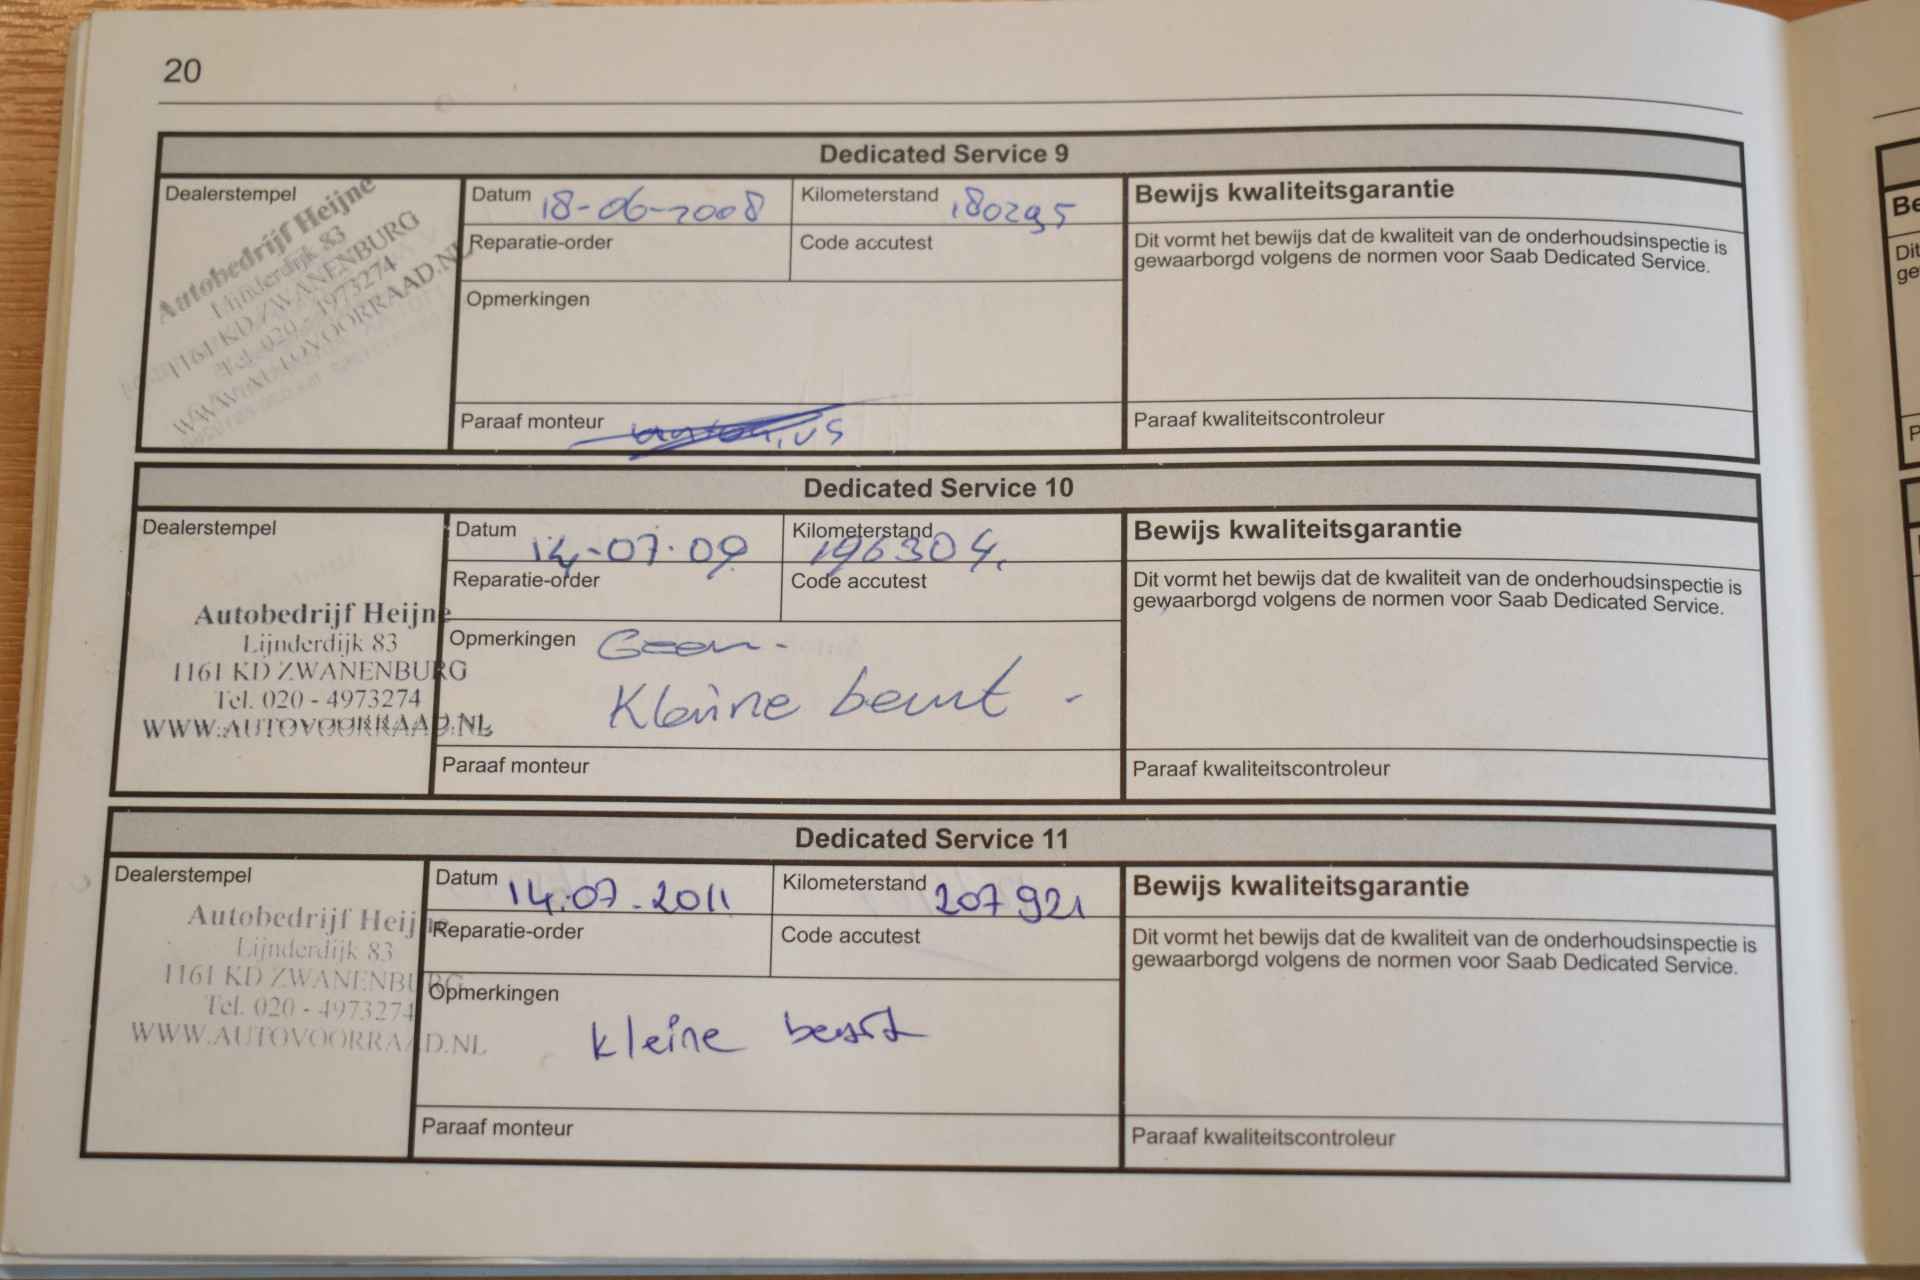 20
Dedicated Service 9
Dealerstempel
Autobedrijf Heijne
Lijnderdijk 83
1161 KD ZWANENBURG
Tel. 020 - 4973274
WWW.AUTOVOORRAAD.NL
Datum 18-06-2008
Kilometerstand 180295
Reparatie-order
Code accutest
Opmerkingen
Paraaf monteur
Bewijs kwaliteitsgarantie
Dit vormt het bewijs dat de kwaliteit van de onderhoudsinspectie is
gewaarborgd volgens de normen voor Saab Dedicated Service.
Paraaf kwaliteitscontroleur
Dedicated Service 10
Dealerstempel
Autobedrijf Heijne
Lijnderdijk 83
1161 KD ZWANENBURG
Tel. 020 - 4973274
WWW.AUTOVOORRAAD.NL
Datum 14-07-09
Kilometerstand 196304.
Reparatie-order
Code accutest
Opmerkingen Geen -
Kleine beurt -
Paraaf monteur
Bewijs kwaliteitsgarantie
Dit vormt het bewijs dat de kwaliteit van de onderhoudsinspectie is
gewaarborgd volgens de normen voor Saab Dedicated Service.
Paraaf kwaliteitscontroleur
Dedicated Service 11
Dealerstempel
Autobedrijf Heijne
Lijnderdijk 83
1161 KD ZWANENBURG
Tel. 020 - 4973274
WWW.AUTOVOORRAAD.NL
Datum 14.07.2011
Kilometerstand 207921
Reparatie-order
Code accutest
Opmerkingen
kleine beurt
Paraaf monteur
Bewijs kwaliteitsgarantie
Dit vormt het bewijs dat de kwaliteit van de onderhoudsinspectie is
gewaarborgd volgens de normen voor Saab Dedicated Service.
Paraaf kwaliteitscontroleur